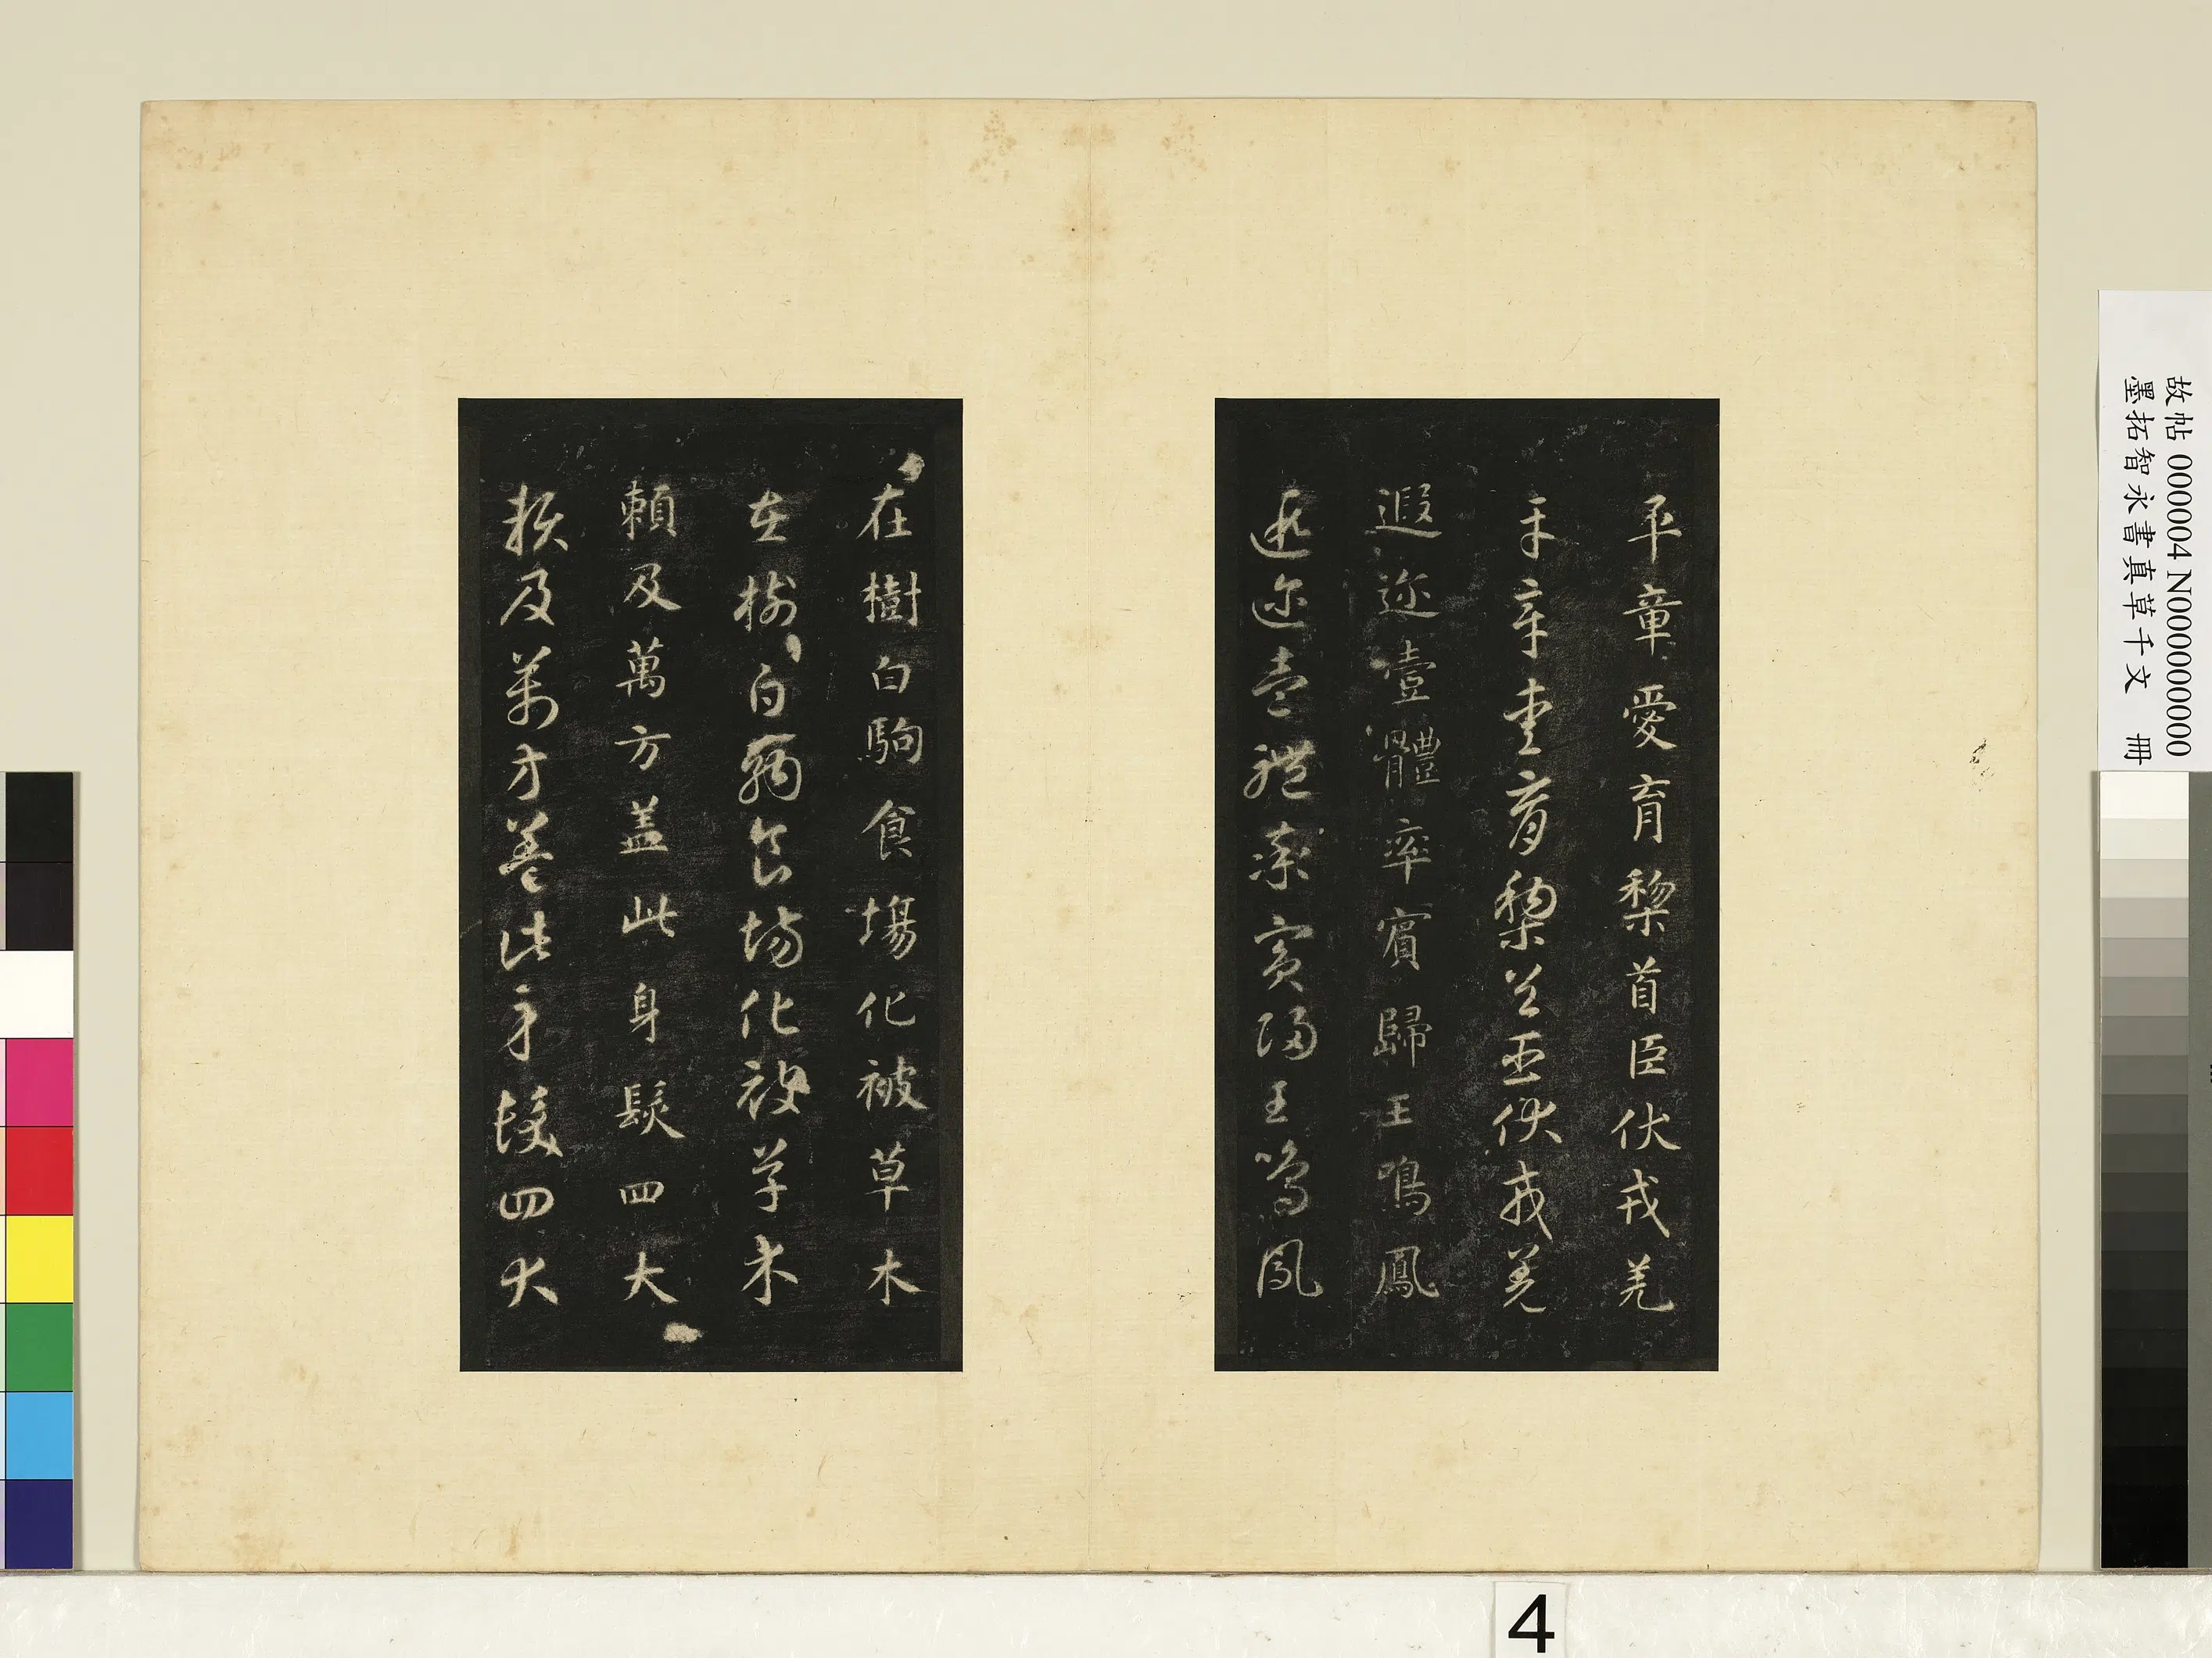 平章愛育黎首臣伏戎羌
平章愛育黎首臣伏戎羌
遐迩壹體率賓歸王鳴鳳
遐迩壹體率賓歸王鳴鳳
在樹白駒食場化被草木
在樹白駒食場化被草木
賴及萬方盖此身髮四大
賴及萬方盖此身髮四大
故帖 000004 N000000000
墨拓智永書真草千文 冊
4